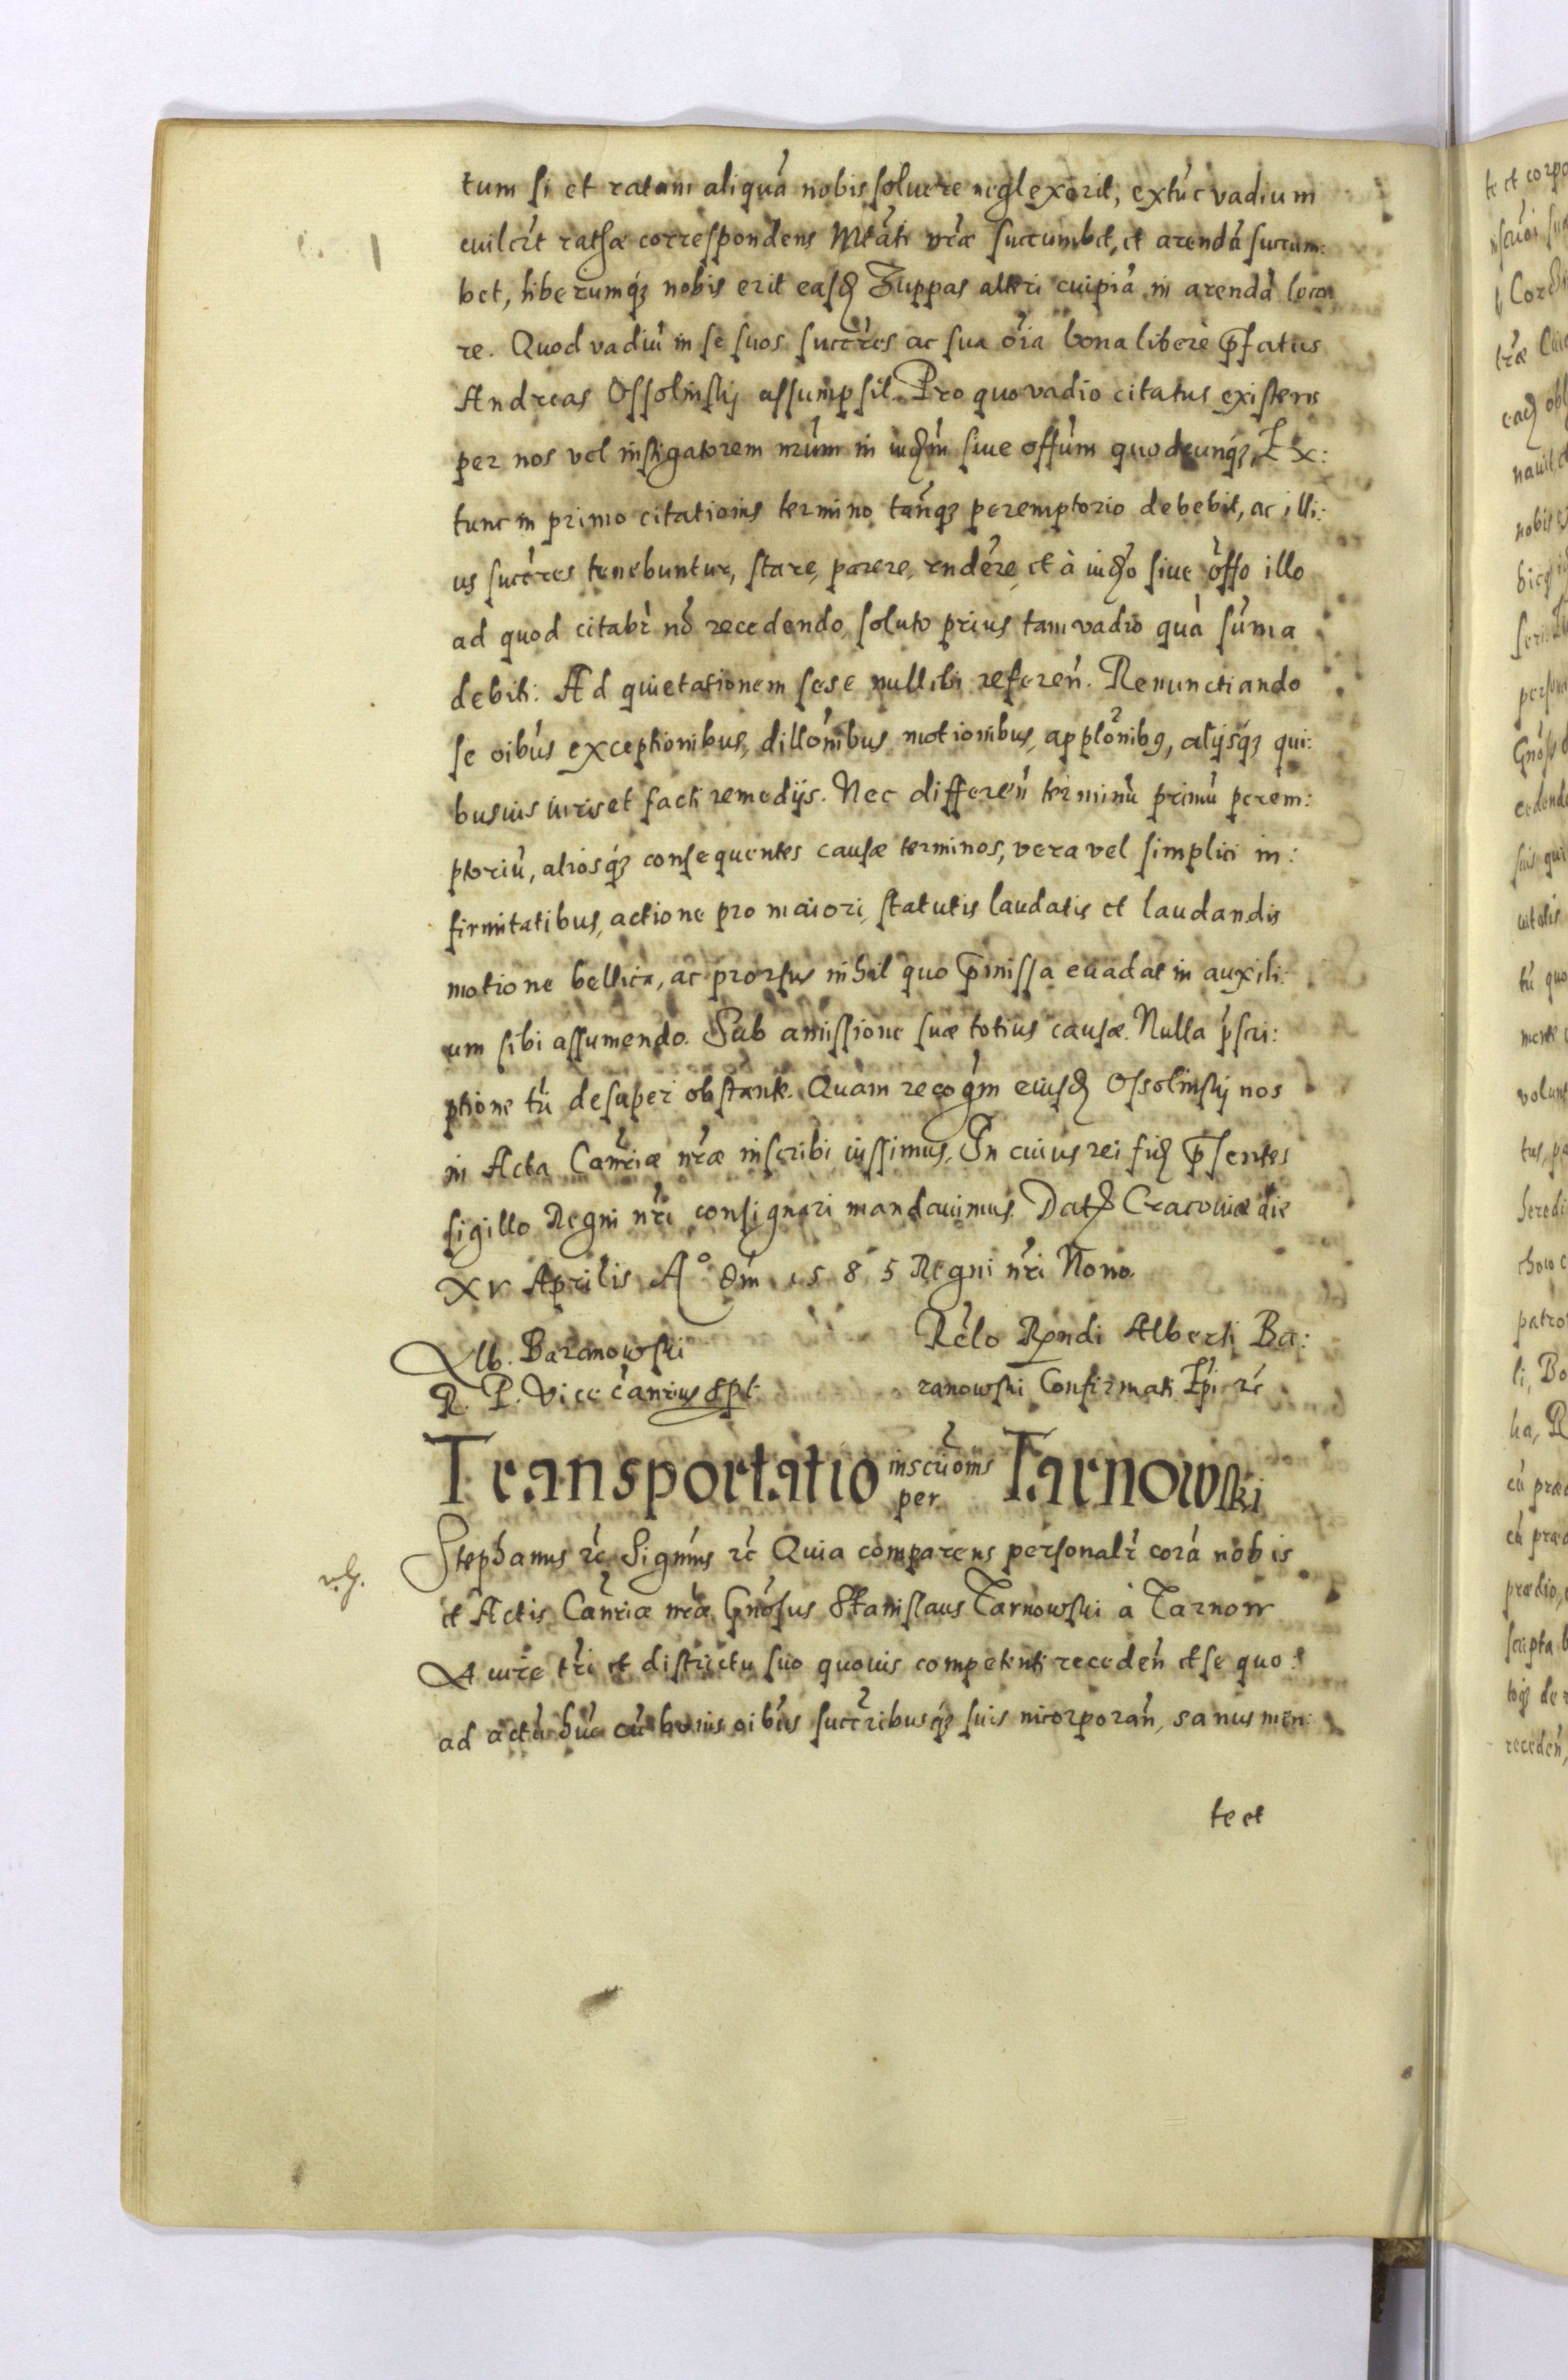 tum si et ratam aliquā nobis soluere neglexerit, extūc vadium
cuilibt rathæ correspondens Mtāti nrāe succumbet, et arendā succum:
bet, liberumqȝ nobis erit easd Zuppas alteri cuipiā in arendā loca
re. Quod vadiū in se suos succres ac sua oīa bona liberè pfatus
Andreas Ossolinskj assumpsit. Pro quo vadio citatus existens
per nos vel instigatorem nrūm in iudm siue offūm quodcunqȝ, Ex:
tunc in primo citationis termino tanqȝ peremptorio debebit, ac illi:
us succres tenebuntur, stare, parere, rndēre, et à iudo siue offo illo
ad quod citabr nō recedendo, soluto prius tam vadio quā sūma
debiti. Ad quietationem sese nullibi referen. Renunctiando
se oibus exceptionibus, dillonibus motionibus, applonibȝ, alijsqȝ qui:
busuis iuris et facti remedijs. Nec differen terminū primū perem:
ptoriū, aliosqȝ consequentes causæ terminos, vera vel simplici in:
firmitatibus, actione pro maiori, statutis laudatis et laudandis
motione bellica, ac prorsus nihil quo pmissa euadat in auxili:
um sibi assumendo. Sub amissione suæ totius causæ. Nulla pscri:
ptione tū desuper obstante. Quam recogm eiusd Ossolinskj nos
in Acta Canriæ nrāe inscribi iussimus. In cuius rei fid psentes
sigillo Regni nri consignari mandauimus. Dat Cracouiæ die
XV Aprilis A° dm 1585 Regni nri Nono.
Alb. Baranowski
R. P. Vicecanrius sspt
Relo Rndi Alberti Ba:
ranowski Confirmati Epi rc
Transportatio inscrōnis per Tarnowski
Stephanus rc Signms rc Quia comparens personalr corā nobis
et Actis Canriæ nrāe Gnosus Stanislaus Tarnowski à Tarnow
A iure tri et districtu suo quouis competenti receden et se quo:
ad actū hūc cū bonis oibus succribusqȝ suis incorporan, sanus men:
te et